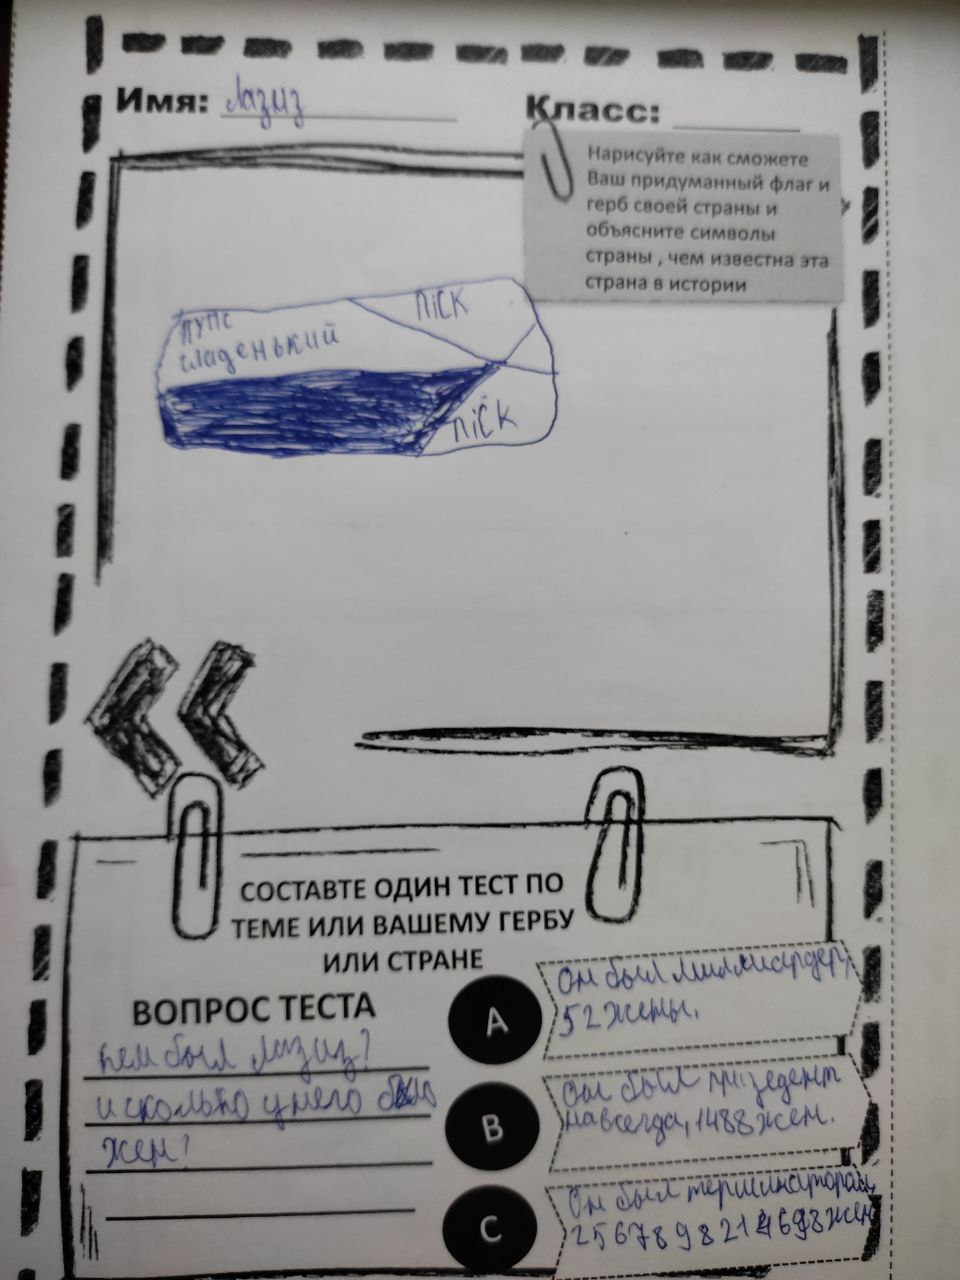 Имя: Лазиз
Класс:
Нарисуйте как сможете
Ваш придуманный флаг и
герб своей страны и
объясните символы
страны , чем известна эта
страна в истории
ПІСК
пупс
сладенький
ПІСК
СОСТАВТЕ ОДИН ТЕСТ ПО
ТЕМЕ ИЛИ ВАШЕМУ ГЕРБУ
ИЛИ СТРАНЕ
ВОПРОС ТЕСТА
кем был Лазиз?
и сколько у него было
жен?
A
Он был миллиардер,
52 жены.
B
Он был призедент
навсегда, 1488 жен.
C
Он был терминатором,
жен